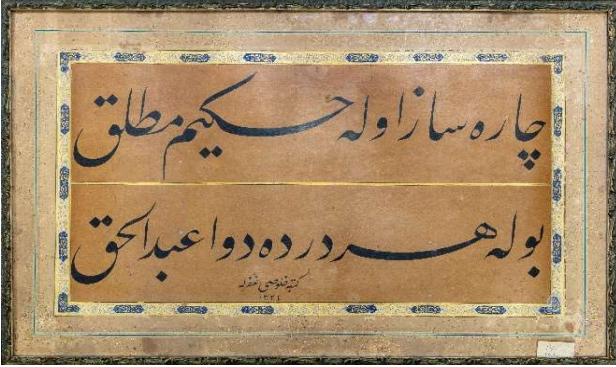 چاره ساز اوله حکیم مطلق
بوله هر درده دوا عبدالحق
کتبه خلوصی غفرله
١٣٢١